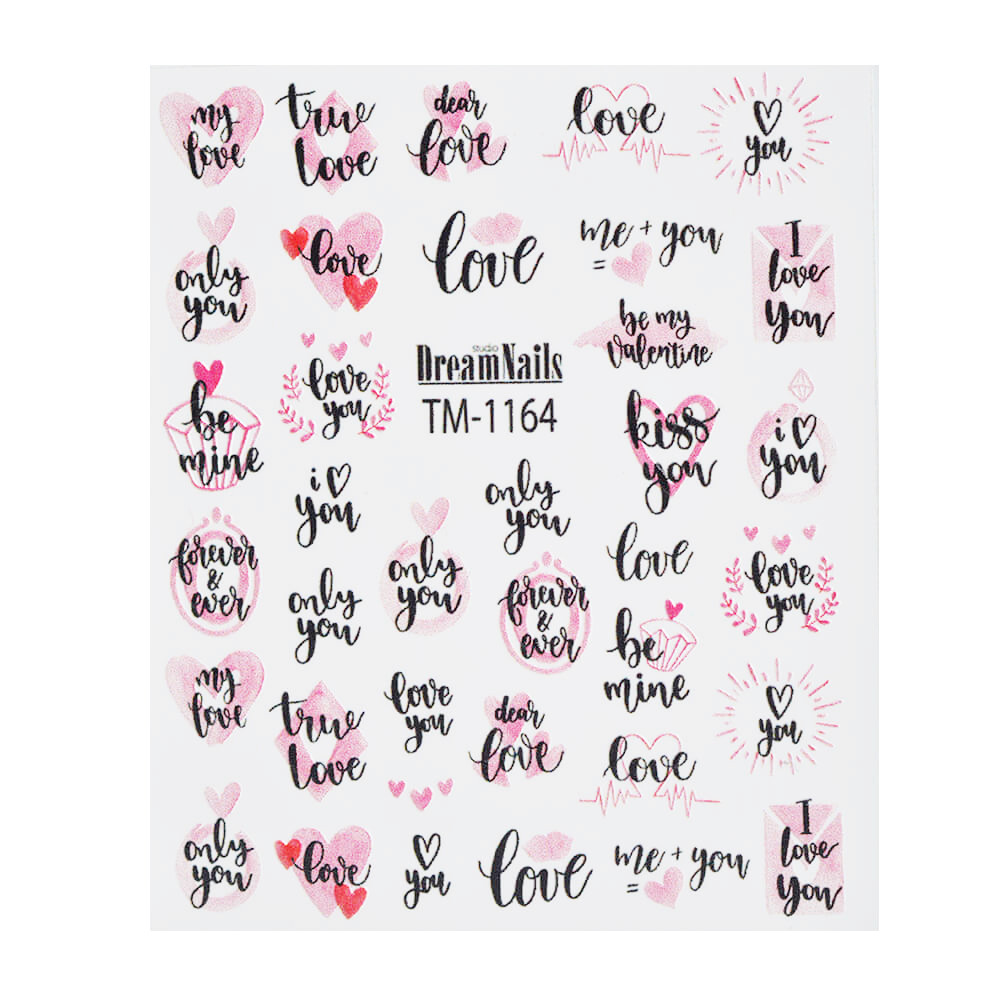 my
love
true
love
dear
love
love
you
only
you
love
love
me + you
=
I
love
you
be my
valentine
be
mine
love
you
studio
DreamNails
TM-1164
kiss
you
i
you
i
you
only
you
forever
&
ever
only
you
only
you
forever
&
ever
love
love
you
be
mine
my
love
true
love
love
you
dear
love
love
you
only
you
love
you
love
me + you
=
I
love
you